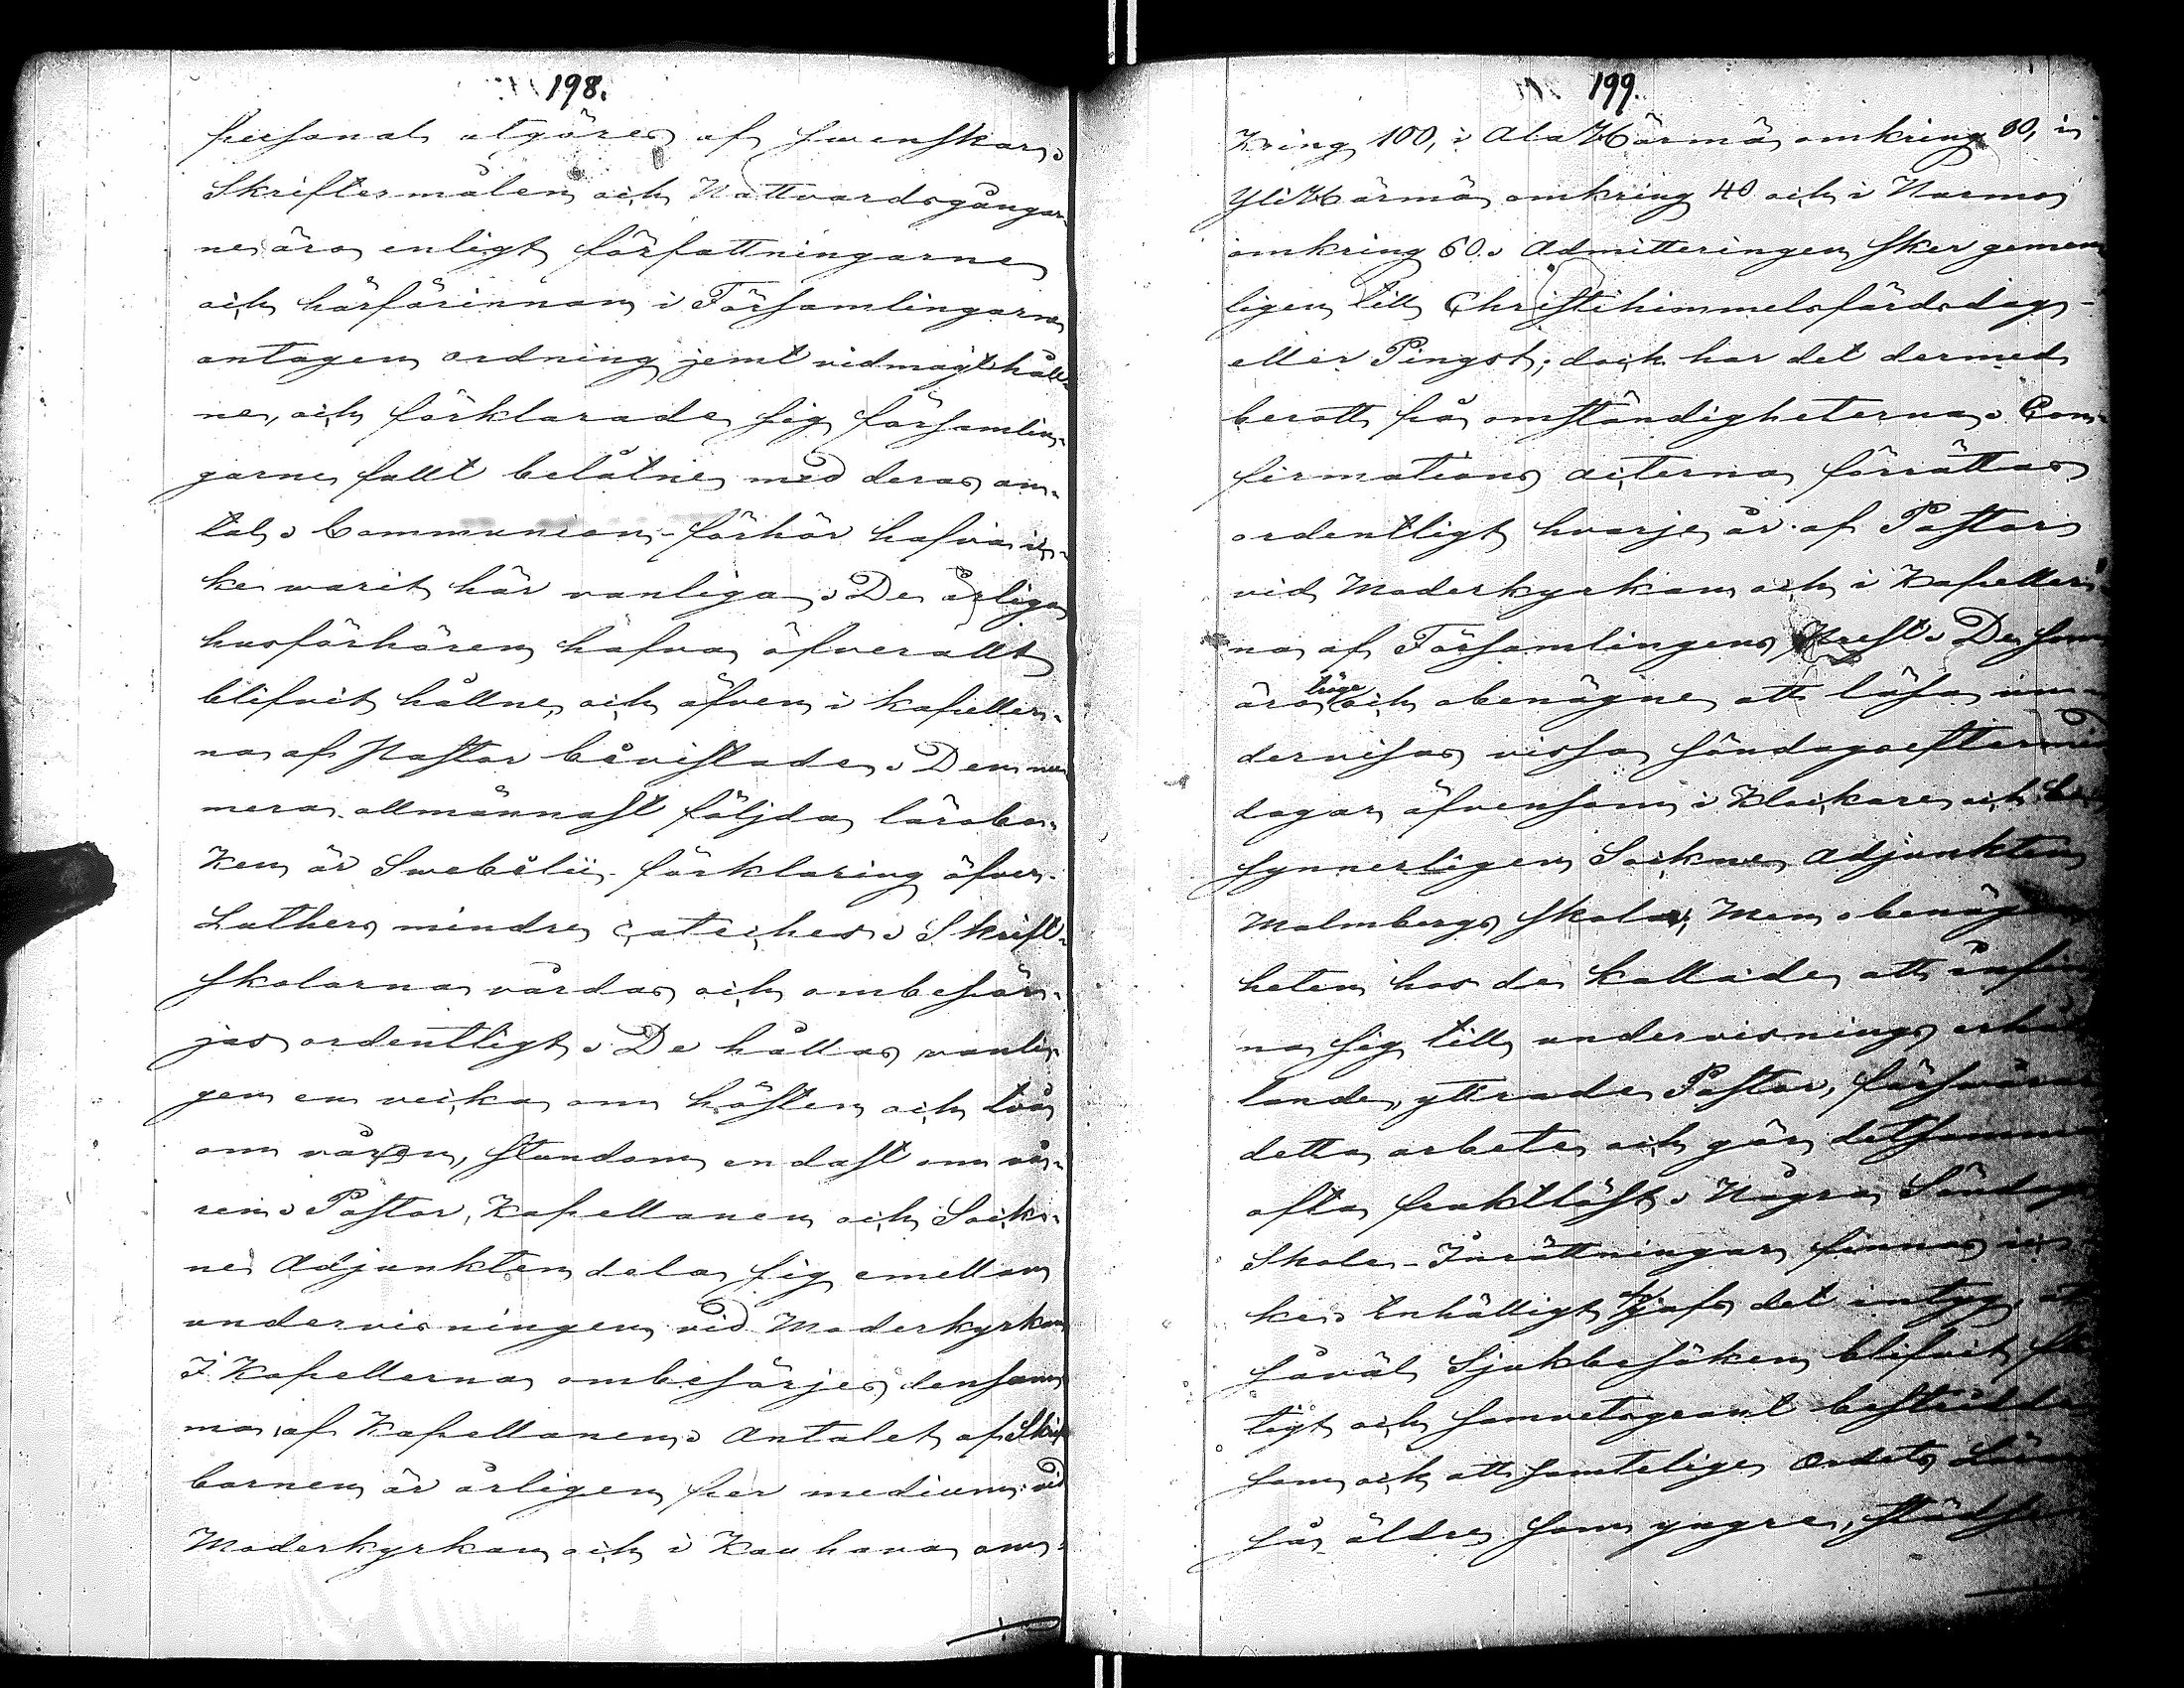 198.
personal utgöres af Swenskar.
Skriftermålen och Nattvardsgångar-
ne äro enligt författningarne
och härförinnan i Församlingarna
antagen ordning jemt vidmagthåll-
ne, och förklarade sig församlin-
garne fullt belåtne med deras an-
tal. Communion-förhör hafva ic-
ke warit här vanliga. De årliga
husförhören hafva öfverallt
blifvit hållne, och äfven i kapeller-
na af Pastor bevistade. Den nu
mera allmännast följda lärobo-
ken är Swebelii förklaring öfver
Luthers mindre cateches. Skrift-
skolorna vårdas och ombesör-
jas ordentligt. De hållas vanli-
gen en vecka om hösten och två
om våren, stundom endast om vå-
ren. Pastor, Kapellanen och Sock-
ne Adjunkten dela sig emellan
undervisningen vid Moderkyrkan
I Kapellerna ombesörjes densam-
ma af Kapellanen. Antalet af Skrift
barnen är årligen per medium vid
Moderkyrkan och i Kauhava om-
199.
kring 100, i Ala Härmä omkring 80, i
Yli Härmä omkring 40 och i Narmo
omkring 60. Admitteringen sker gemen
ligen till Christihimmelsfärdsdag
eller Pingst; dock har det dermed
berott på omständigheterna. Con-
firmations acterna förrättas
ordentligt hvarje år af Pastor
vid Moderkyrkan och i Kapeller-
na af Församlingens Prest. De som
äro tröge och obenägne att läsa un-
dervisas vissa söndagseftermid
dagar äfvensom i Klockare och
synnerligen Sockne Adjunkten
Malmbergs skola; Men obenägen
heten hos de kallade att infin
na sig till undervisnings erhål
lande, yttrade Pastor, försvårar
detta arbete och gör detsamma
ofta fruktlöst. Några Söndags
Skole-Inrättningar finnas ic
ke. Enhälligt gafs det intyg, att
såväl Sjukbesöken blifvit fli
tigt och samvetsgrant bestridde
som ock att samtelige Ordets Lärare
så äldre som yngre, städse